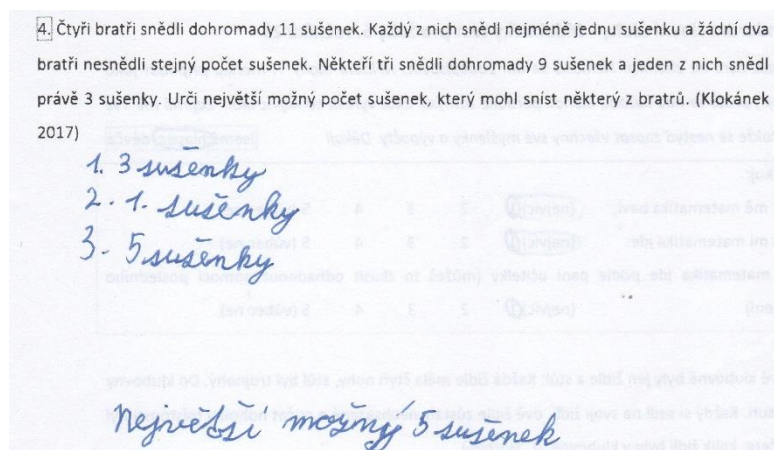 4. Čtyři bratři snědli dohromady 11 sušenek. Každý z nich snědl nejméně jednu sušenku a žádní dva
bratři nesnědli stejný počet sušenek. Někteří tři snědli dohromady 9 sušenek a jeden z nich snědl
právě 3 sušenky. Urči největší možný počet sušenek, který mohl sníst některý z bratrů. (Klokánek
2017)
1. 3 sušenky
2. 1. sušenky
3. 5 sušenky
Největší možný 5 sušenek